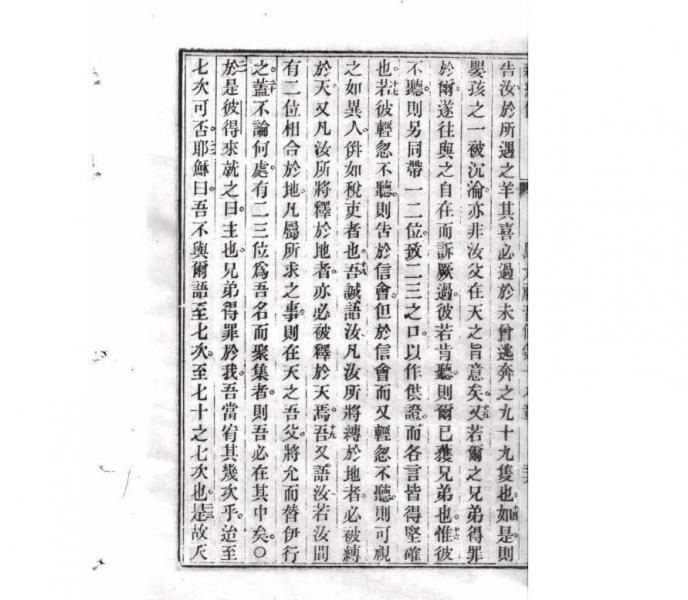 告汝於所遇之羊其喜必過於未曾逃奔之九十九隻也。十四如是則
嬰孩之一被沉淪亦非汝父在天之旨意矣。十五又若爾之兄弟得罪
於爾遂往與之自在而訴厥過。彼若肯聽則爾已獲兄弟也。十六惟彼
不聽則另同帶一二位致二三之口。以作供證。而各言皆得堅確
也。十七若彼輕忽不聽。則告於信會。但於信會而又輕忽不聽。則可視
之如異人。併如稅吏者也。十八吾誠語汝凡汝所將縛於地者。必被縛
於天。又凡汝所將釋於地者。亦必被釋於天焉。十九吾又語汝若汝間
有二位相合於地。凡屬所求之事。則在天之吾父。將允而替伊行
之。二十蓋不論何處。有二三位爲吾名而聚集者。則吾必在其中矣。〇
於是彼得來就之曰。主也。兄弟得罪於我。吾當宥其幾次乎。迨至
七次可否。耶穌曰。吾不與爾語至七次。至七十之七次也。是故天